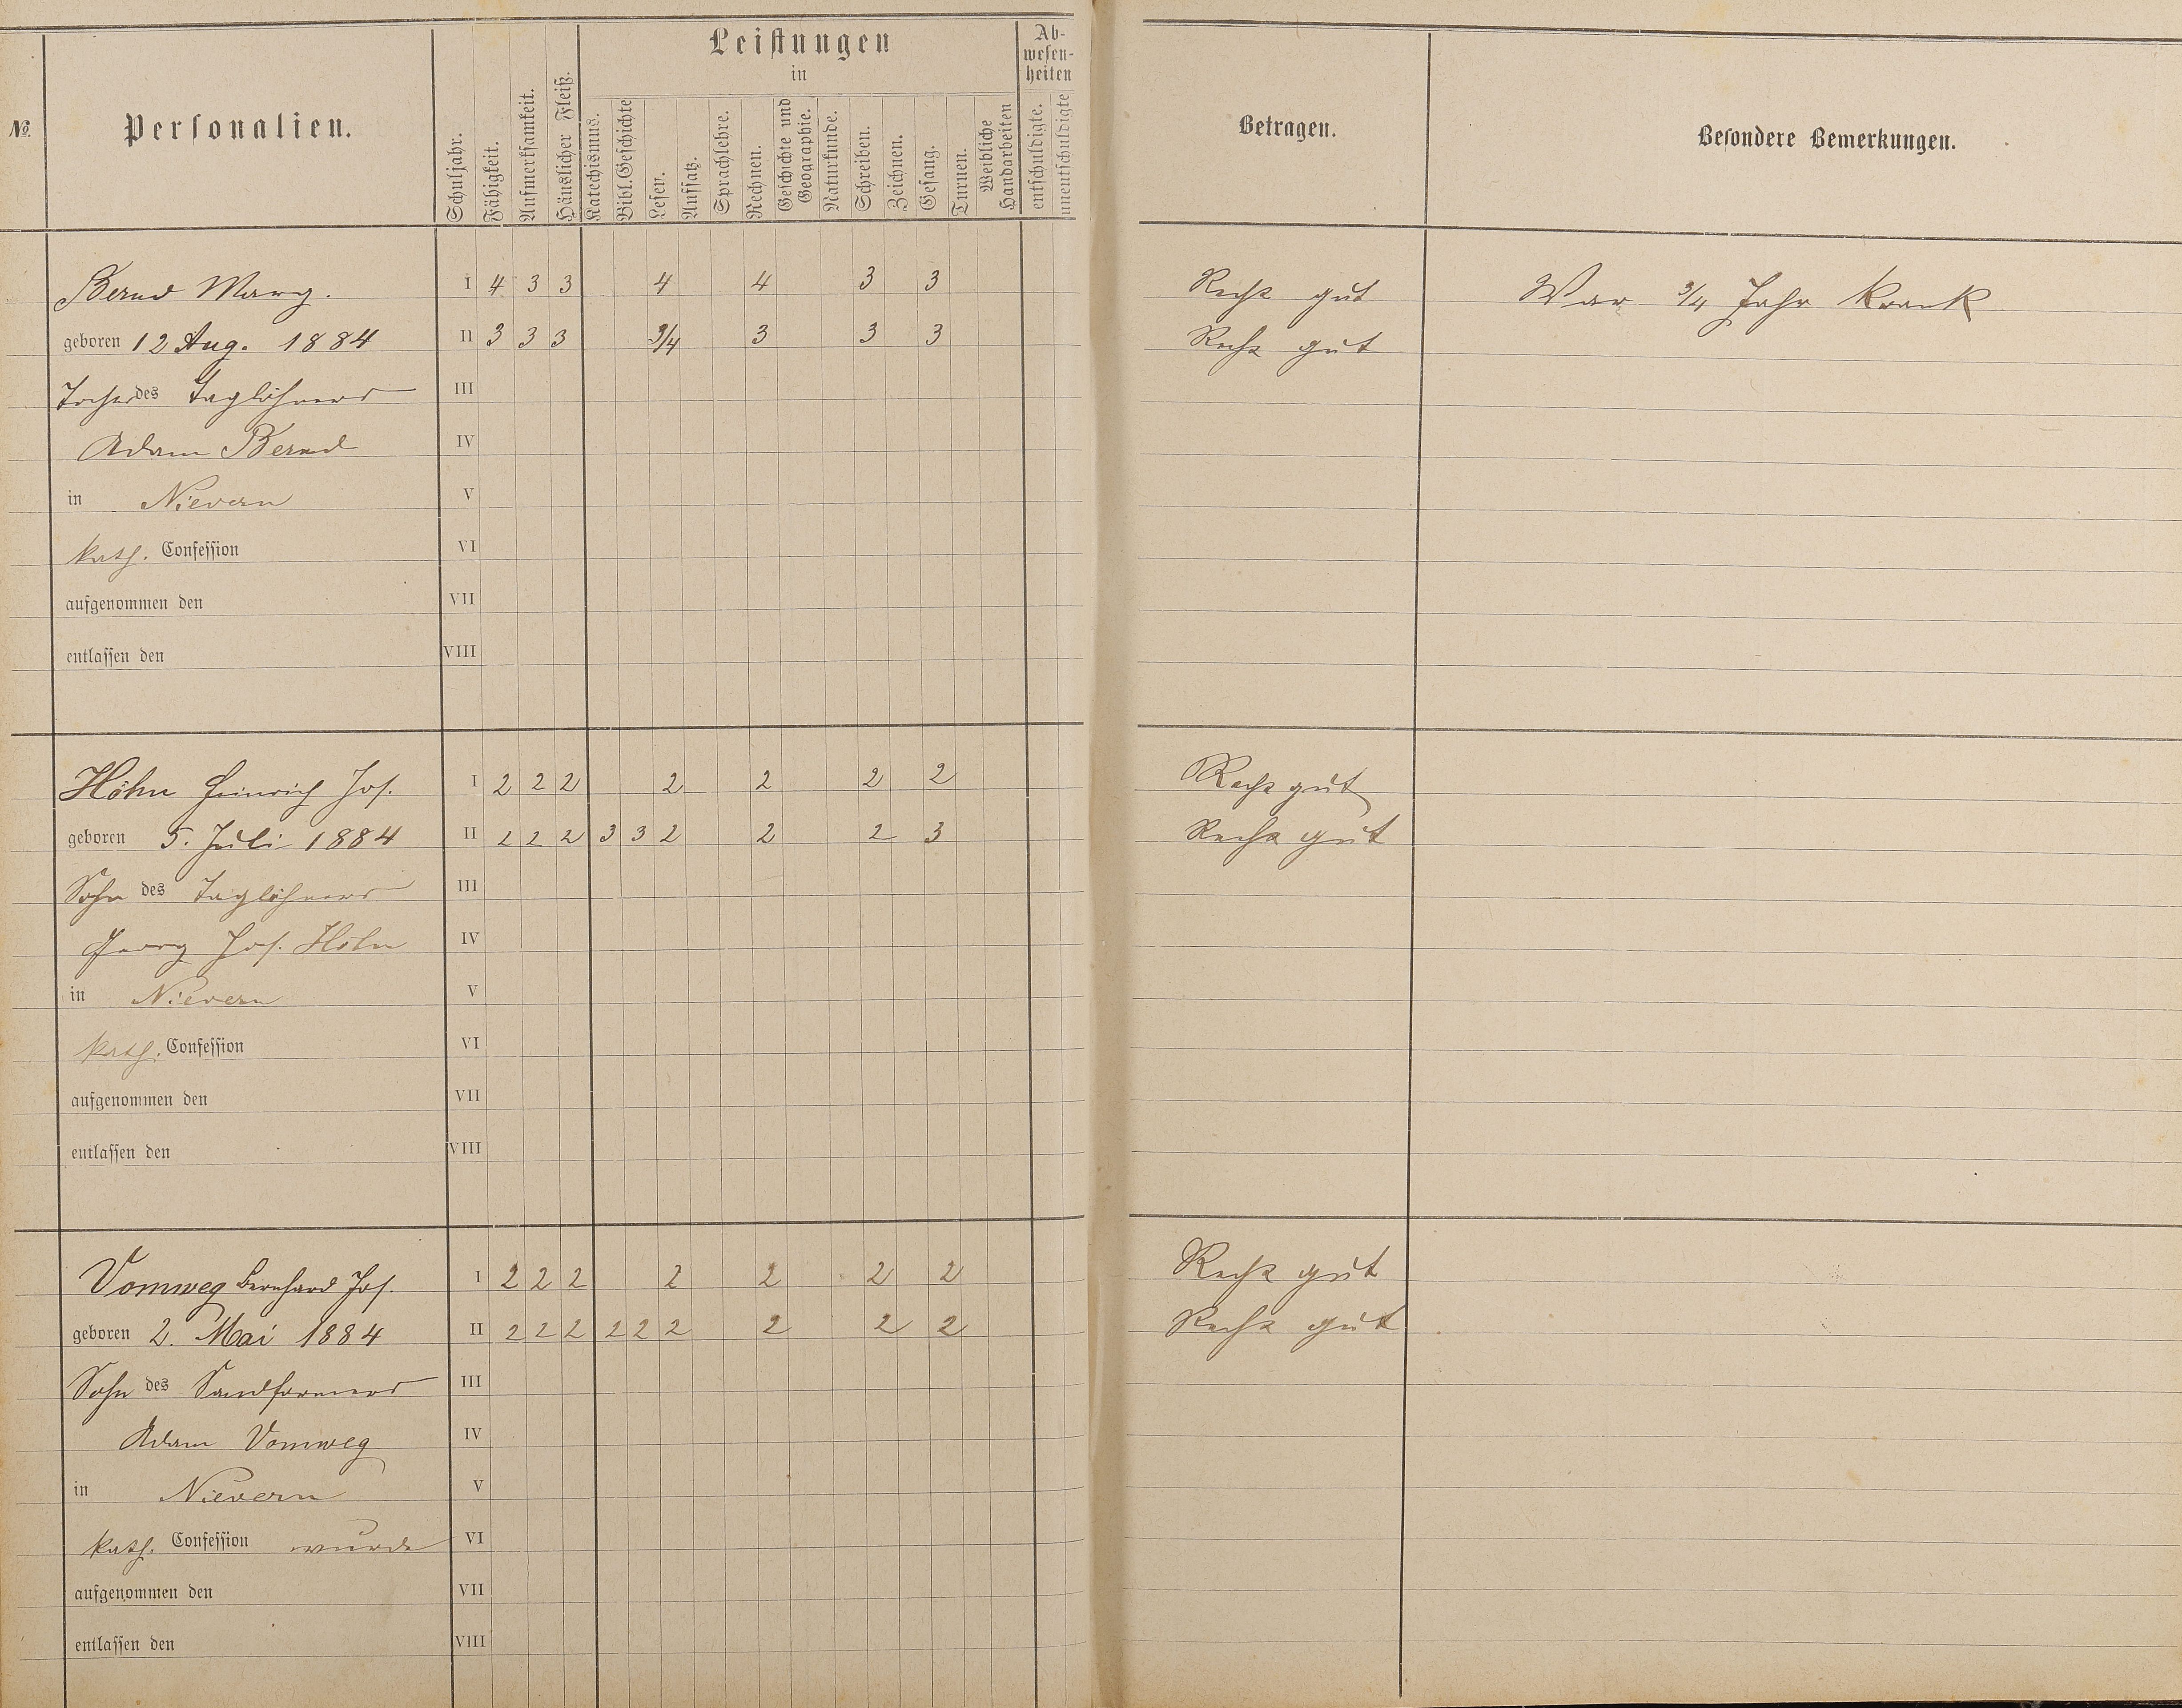 Leistungen
in
Ab-
wesen-
heiten
№.
Personalien.
Schuljahr.
Fähigkeit.
Aufmerksamkeit.
Häuslicher Fleiß.
Katechismus.
Bibl. Geschichte
Lesen.
Aufsatz.
Sprachlehre.
Rechnen.
Geschichte und
Geographie.
Naturkunde.
Schreiben.
Zeichnen.
Gesang.
Turnen.
Weibliche
Handarbeiten
entschuldigte.
unentschuldigte
Betragen.
Besondere Bemerkungen.
Bernd Marg. I 4 3 3 4 4 3 3 Recht gut War 3/4 Jahr krank
geboren 12 Aug. 1884 II 3 3 3 3/4 3 3 3 Recht gut
Tochter des Taglöhners III
Adam Bernd IV
in Nievern V
kath. Confession VI
aufgenommen den VII
entlassen den VIII
Höhn Heinrich Jos. I 2 2 2 2 2 2 2 Recht gut
geboren 5. Juli 1884 II 2 2 2 3 3 2 2 2 3 Recht gut
Sohn des Taglöhners III
Georg Jos. Höhn IV
in Nievern V
kath. Confession VI
aufgenommen den VII
entlassen den VIII
Vomweg Bernhard Jos. I 2 2 2 2 2 2 2 Recht gut
geboren 2. Mai 1884 II 2 2 2 2 2 2 2 2 2 Recht gut
Sohn des Sandformers III
Adam Vomweg IV
in Nievern V
kath. Confession wurde VI
aufgenommen den VII
entlassen den VIII